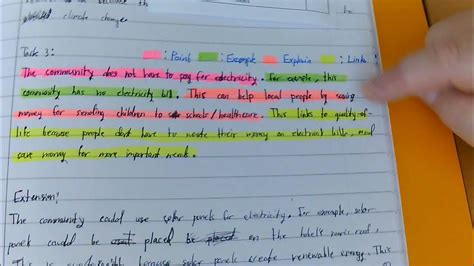 climate change.
Task 3:
: Point : Example : Explain : Link
The community does not have to pay for electricity. For example, this
community has no electricity bill. This can help local people by saving
money for sending children to schools/healthcare. This links to quality-of-
life because people don't have to waste their money on bills, and
save money for more important needs.
Extension:
The community could use solar panels for electricity. For example, solar
panels could be placed on the roof,
This is because solar panels create renewable energy. This